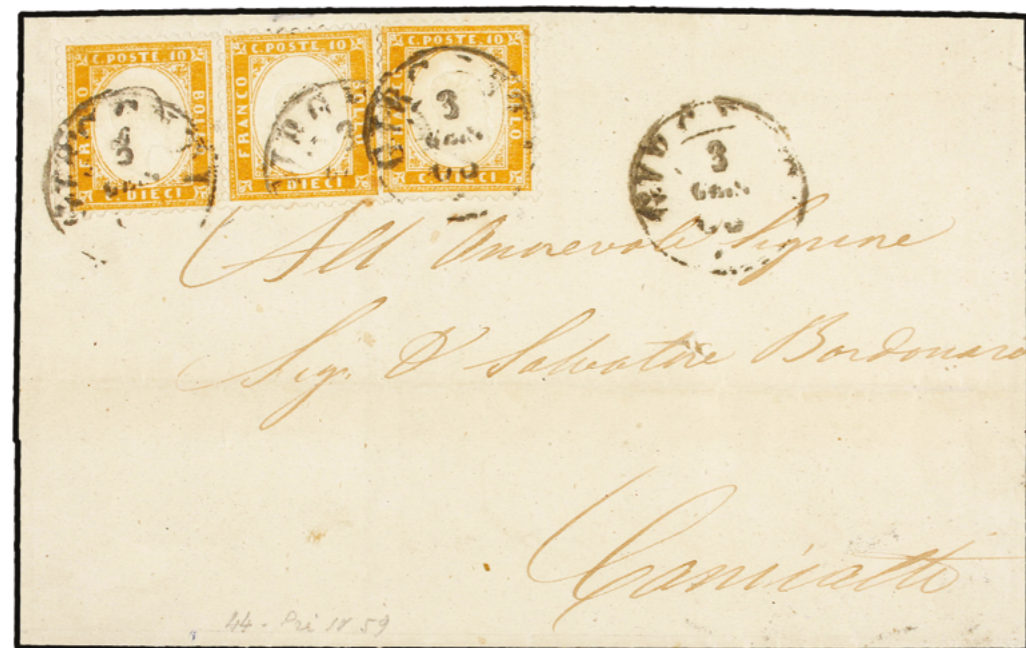 C. POSTE. 10
FRANCO
BOLLO
C. DIECI
C. POSTE. 10
FRANCO
BOLLO
C. DIECI
C. POSTE. 10
BOLLO
3
GEN
3
3
GEN
3
GEN
All' Onorevole Signore
Sig. D. Salvatore Bordonaro
Canicatti
44 -
59